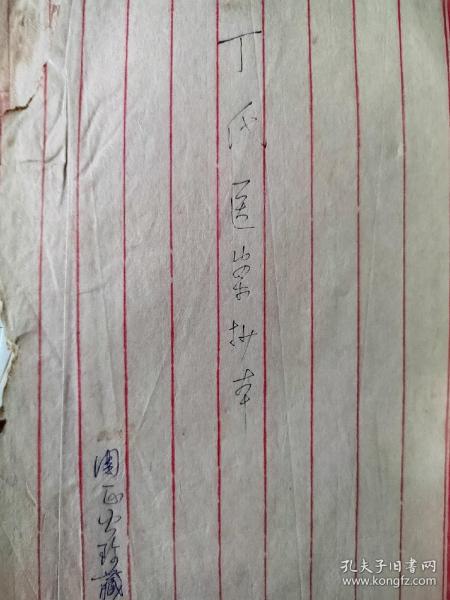 丁氏医案抄本
周正珍藏
孔夫子旧书网
www.kongfz.com